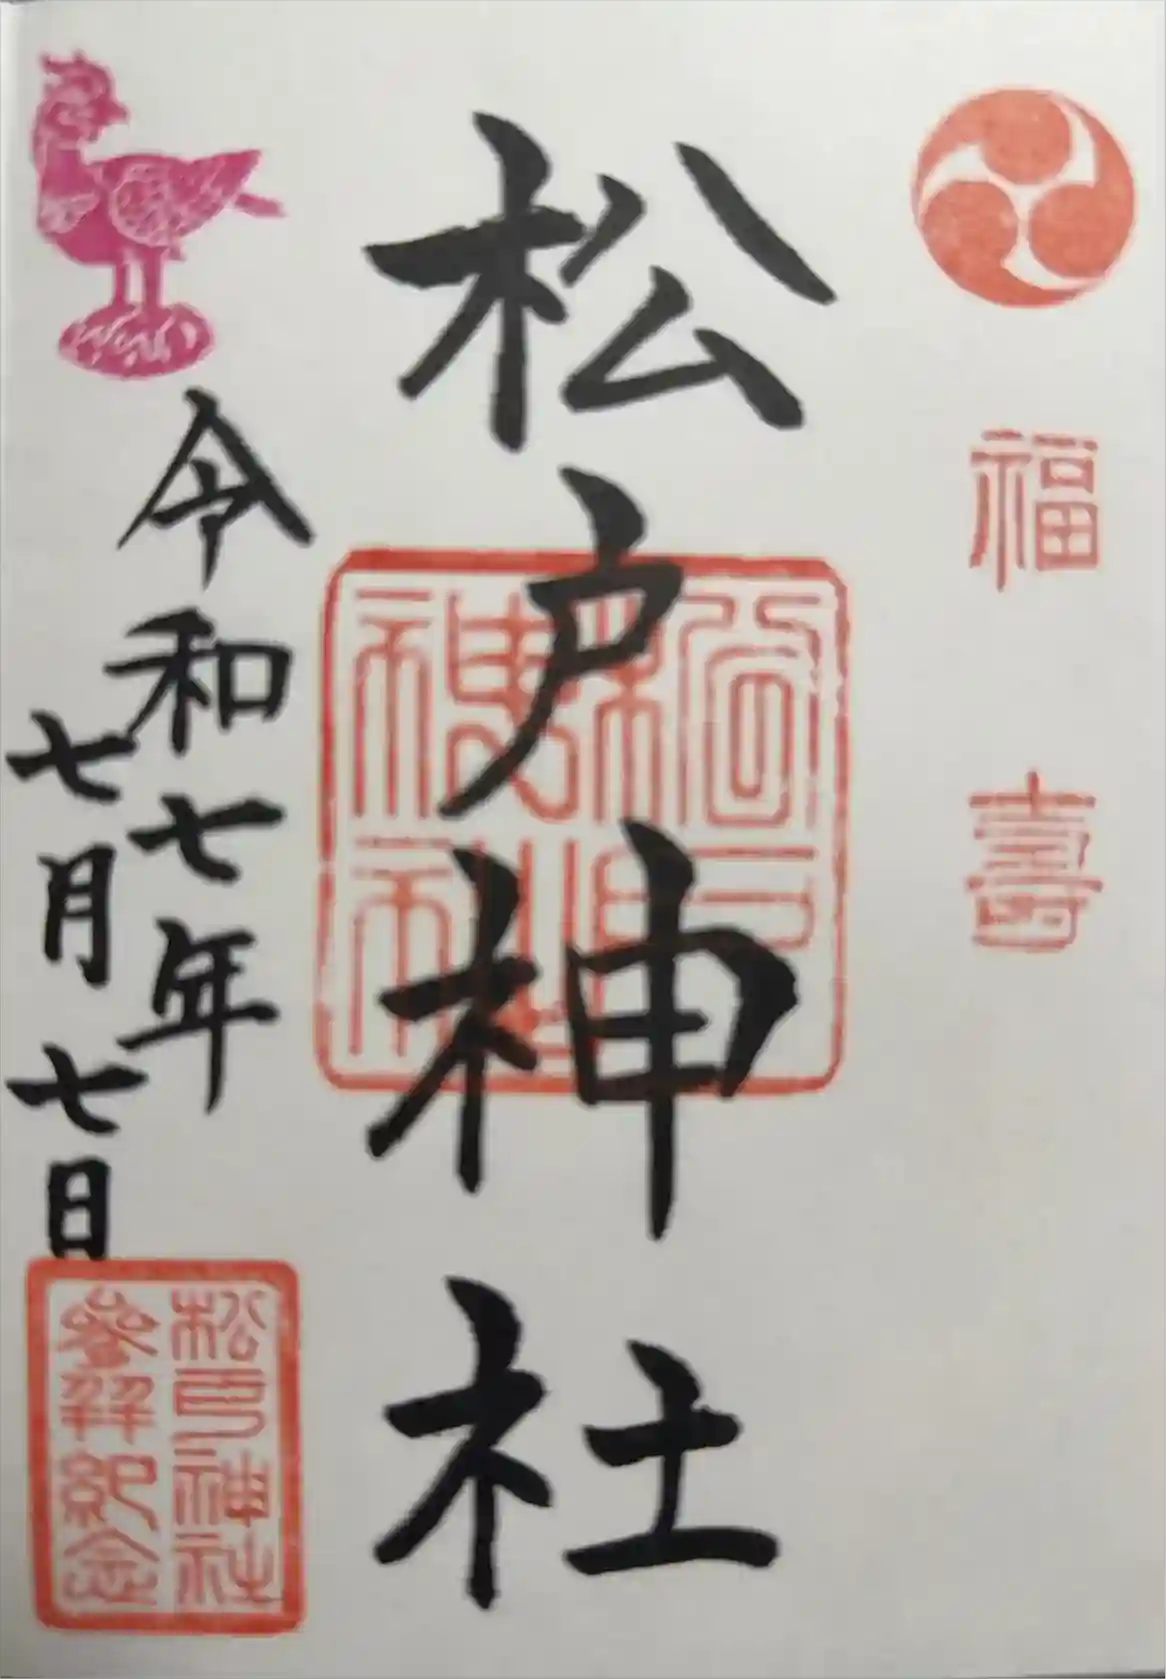 福壽
松戸神社
令和七年
七月七日
松戸神社
參拜紀念